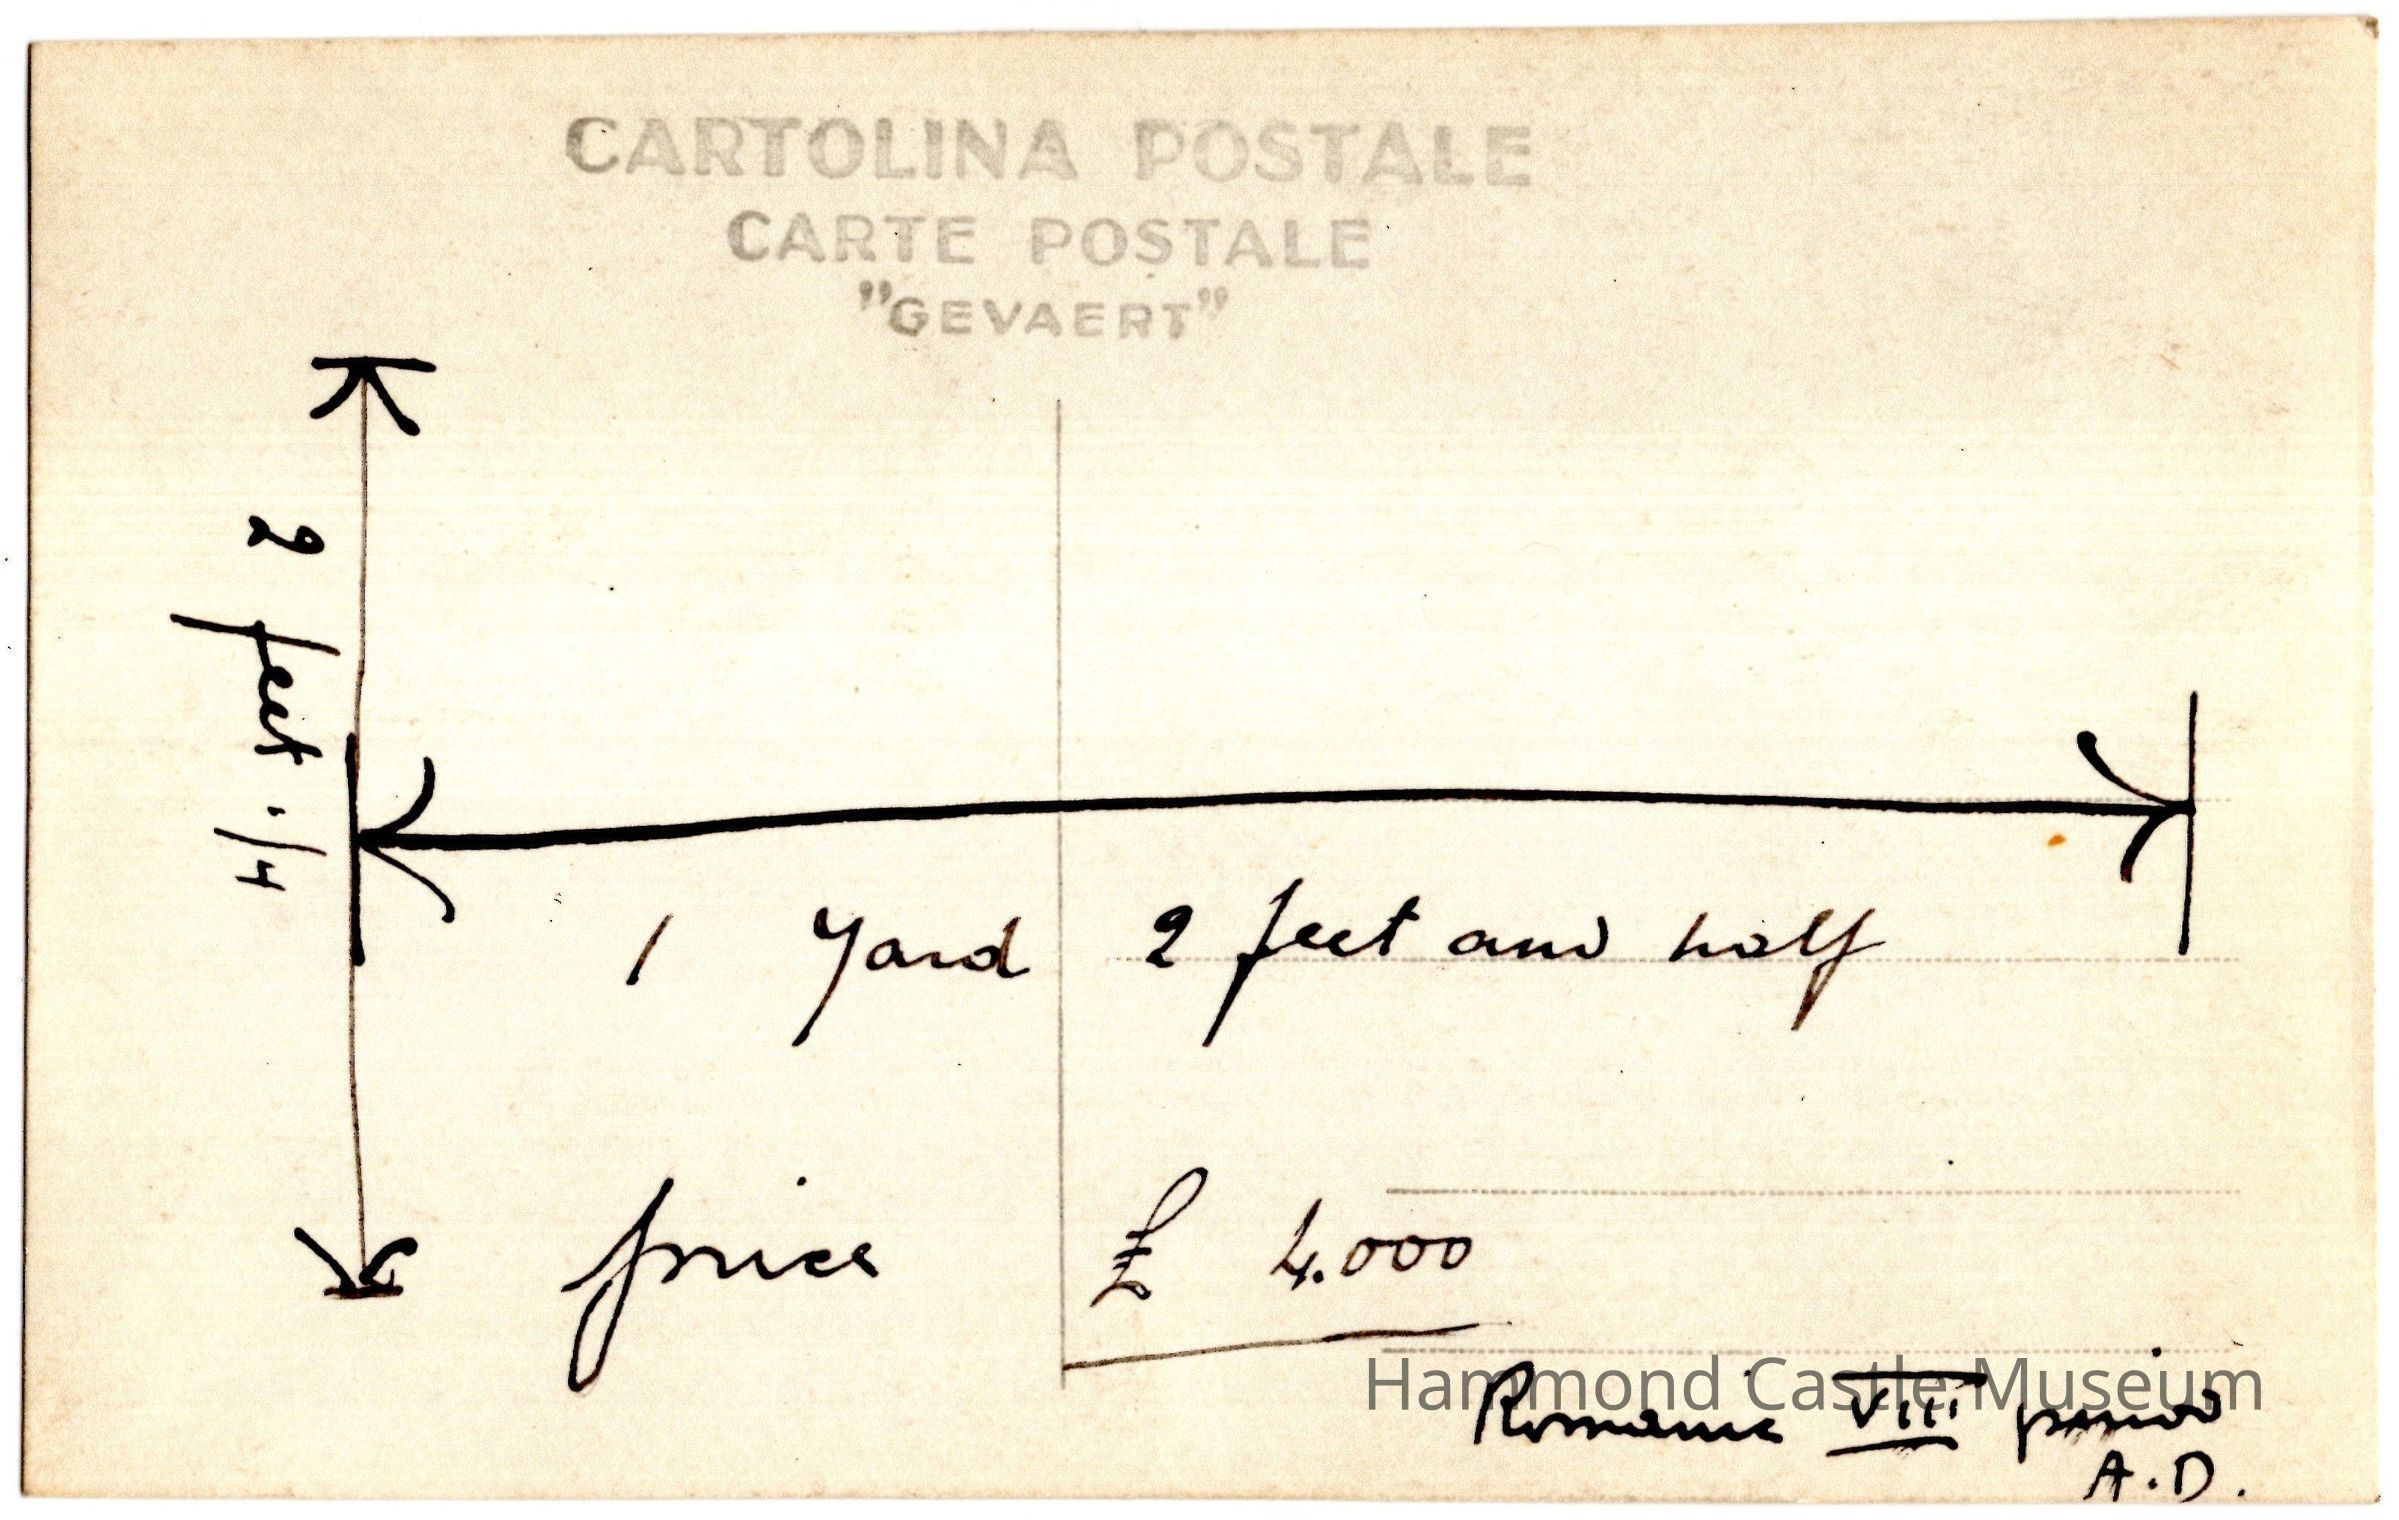 CARTOLINA POSTALE
CARTE POSTALE
"GEVAERT"
2 feet 1/4
1 Yard 2 feet and half
price £ 4.000
Hammond Castle Museum
Romanic VIII period
A.D.